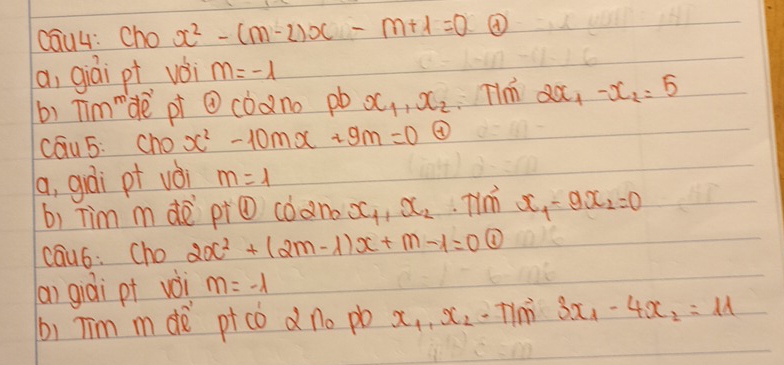 Câu4: Cho x² - (m-2)x - m+1=0 ①
a, giải pt với m=-1
b) Tìm m để pt ① có 2 no pb x₁, x₂. T/m 2x₁ - x₂ = 5
Câu 5: Cho x² - 10mx + 9m = 0 ①
a, giải pt với m = 1
b) Tìm m để pt ① có 2 no x₁, x₂. T/m x₁ - 9x₂ = 0
Câu6: Cho 2x² + (2m-1)x + m - 1 = 0 ①
a) giải pt với m = -1
b) Tìm m để pt có 2 no pb x₁, x₂ - T/m 3x₁ - 4x₂ = 11